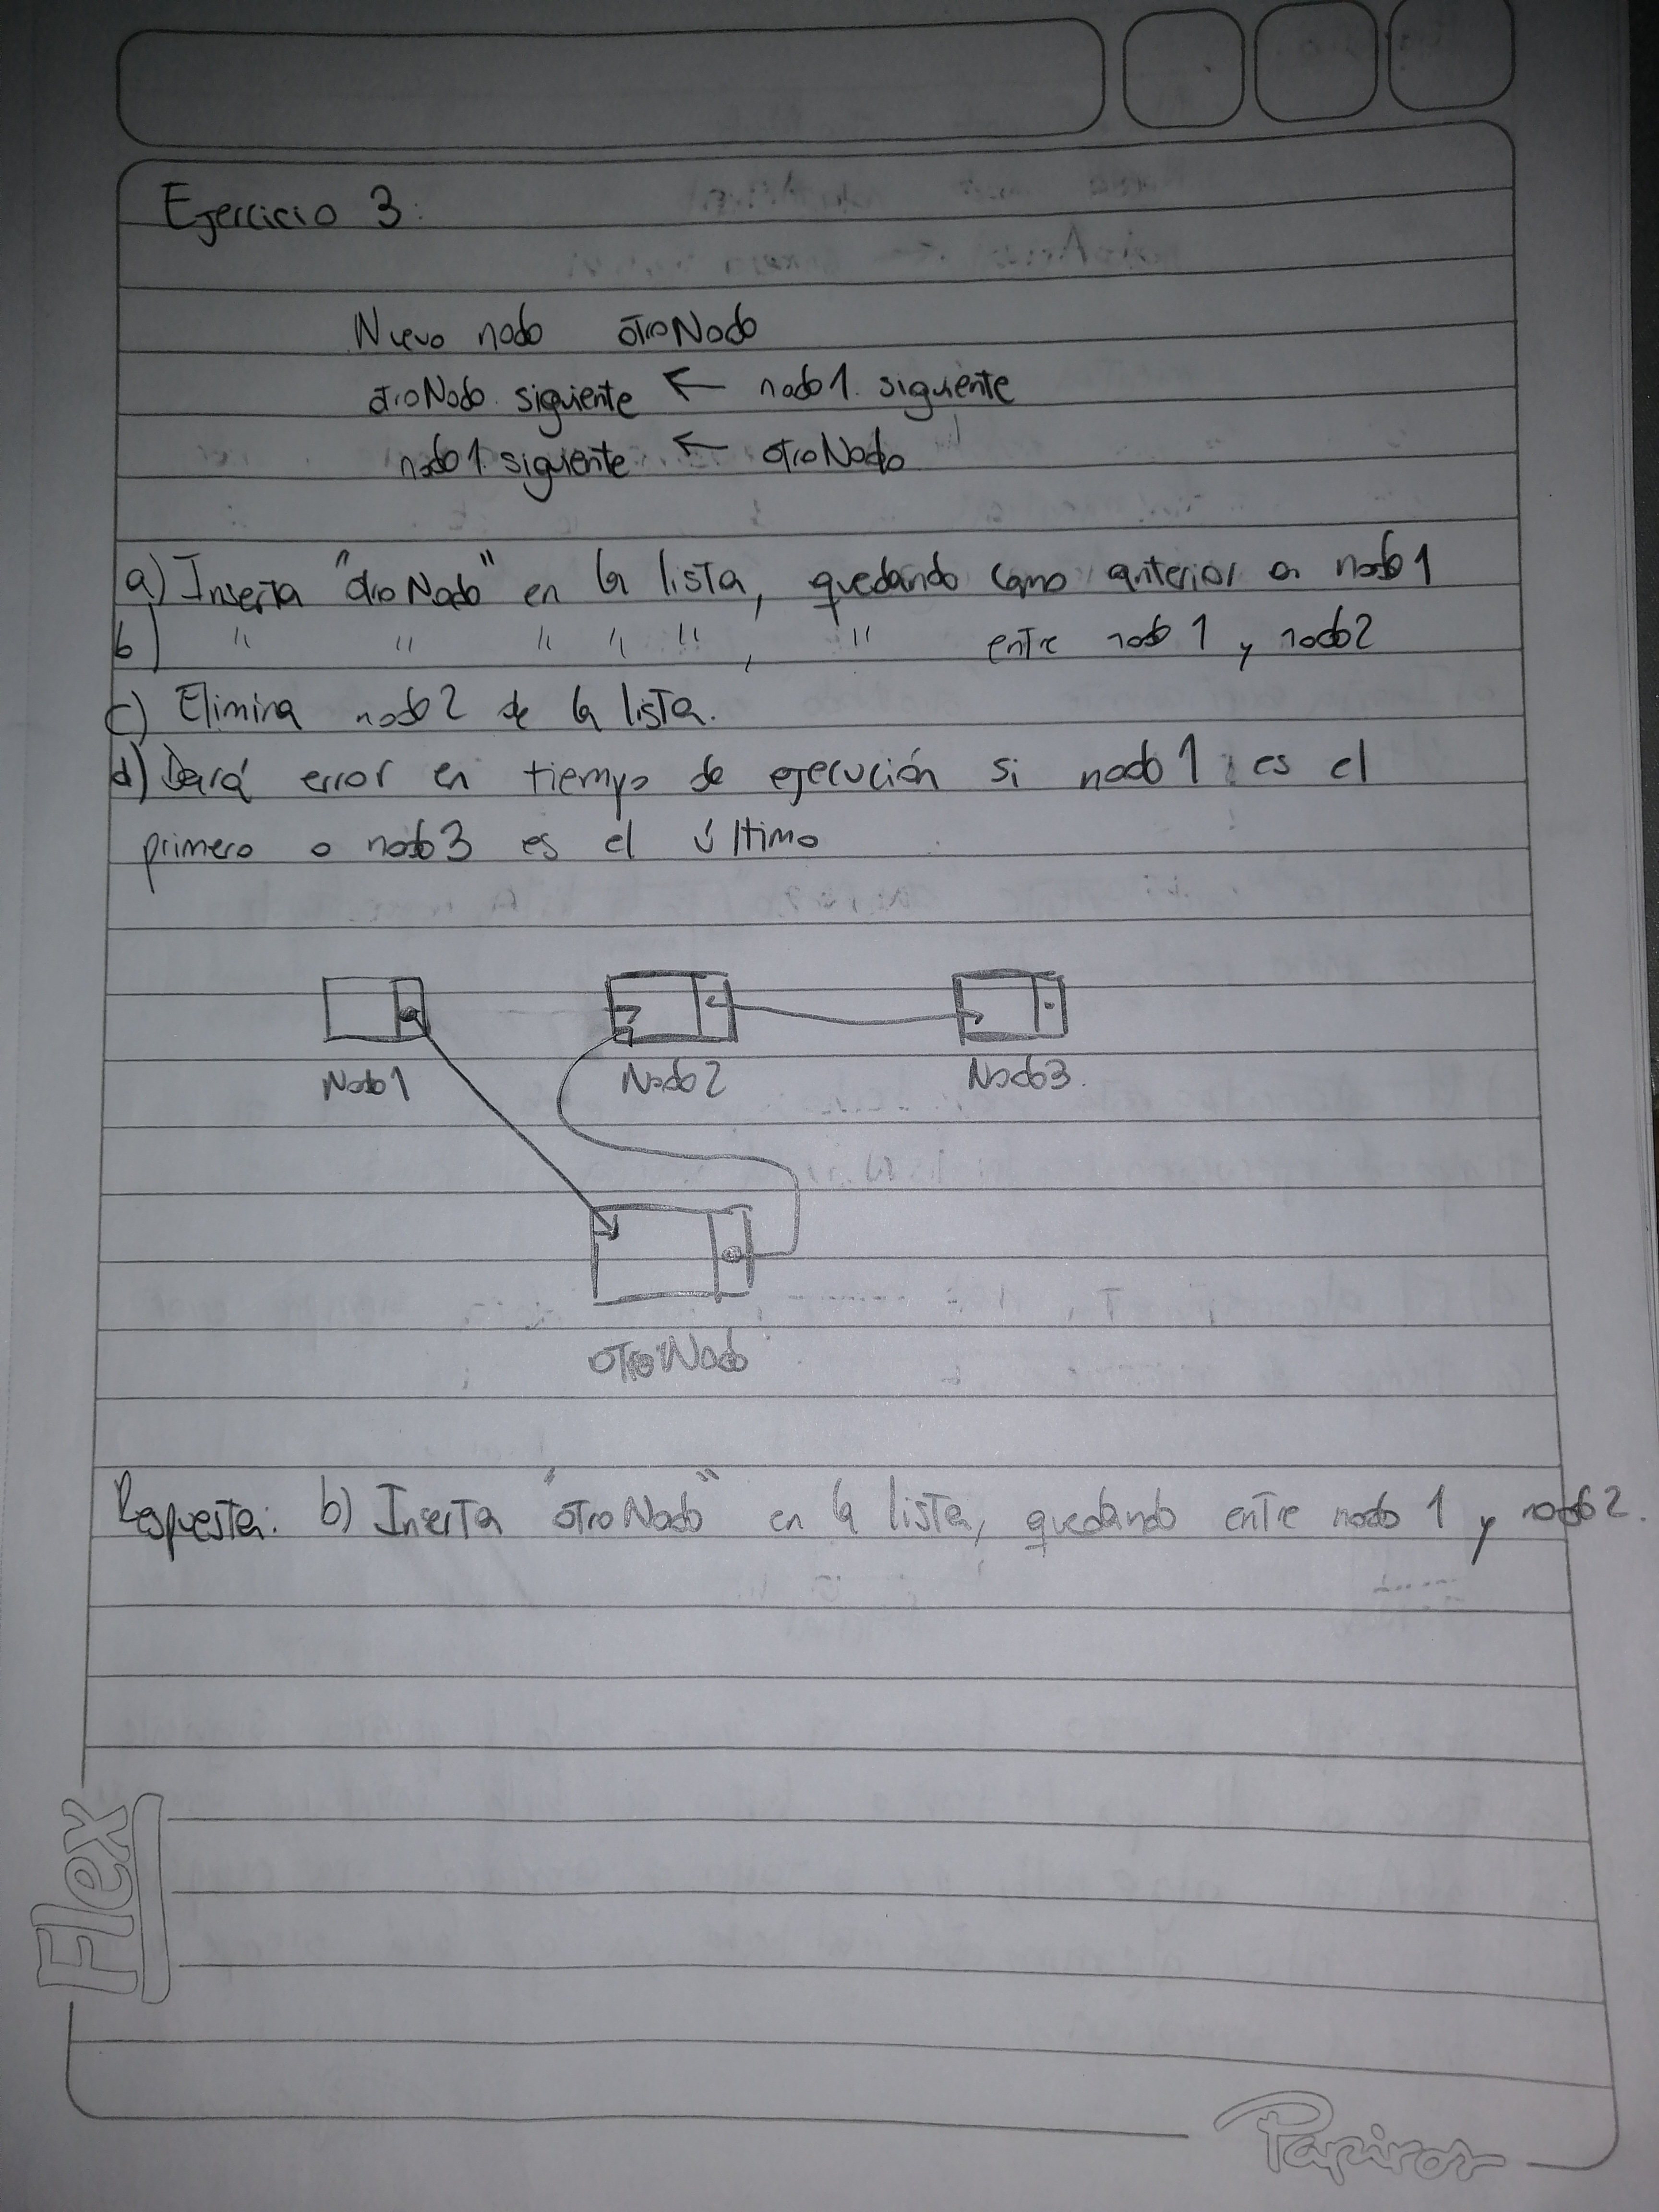 Ejercicio 3:
Nuevo nodo otroNodo
otroNodo. siguiente ← nodo1. siguiente
nodo1. siguiente ← otroNodo
a) Inserta "otroNodo" en la lista, quedando como anterior a nodo1
b) " " " " ", " entre nodo1 y nodo2
c) Elimina nodo2 de la lista.
d) Dará error en tiempo de ejecución si nodo1 es el
primero o nodo3 es el último
Nodo1 Nodo2 Nodo3.
otroNodo
Respuesta: b) Inserta "otroNodo" en la lista, quedando entre nodo 1 y nodo2.
Flex
Papiros